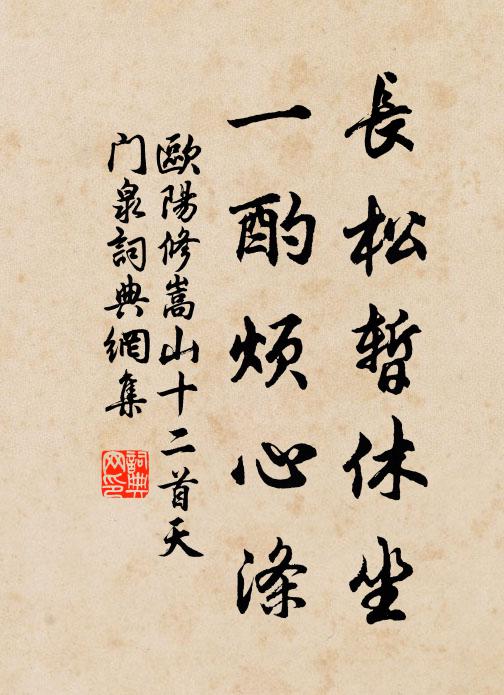 長松暫休坐
一酌煩心滌
歐陽修嵩山十二首天
门泉詞典網集
詞典网印